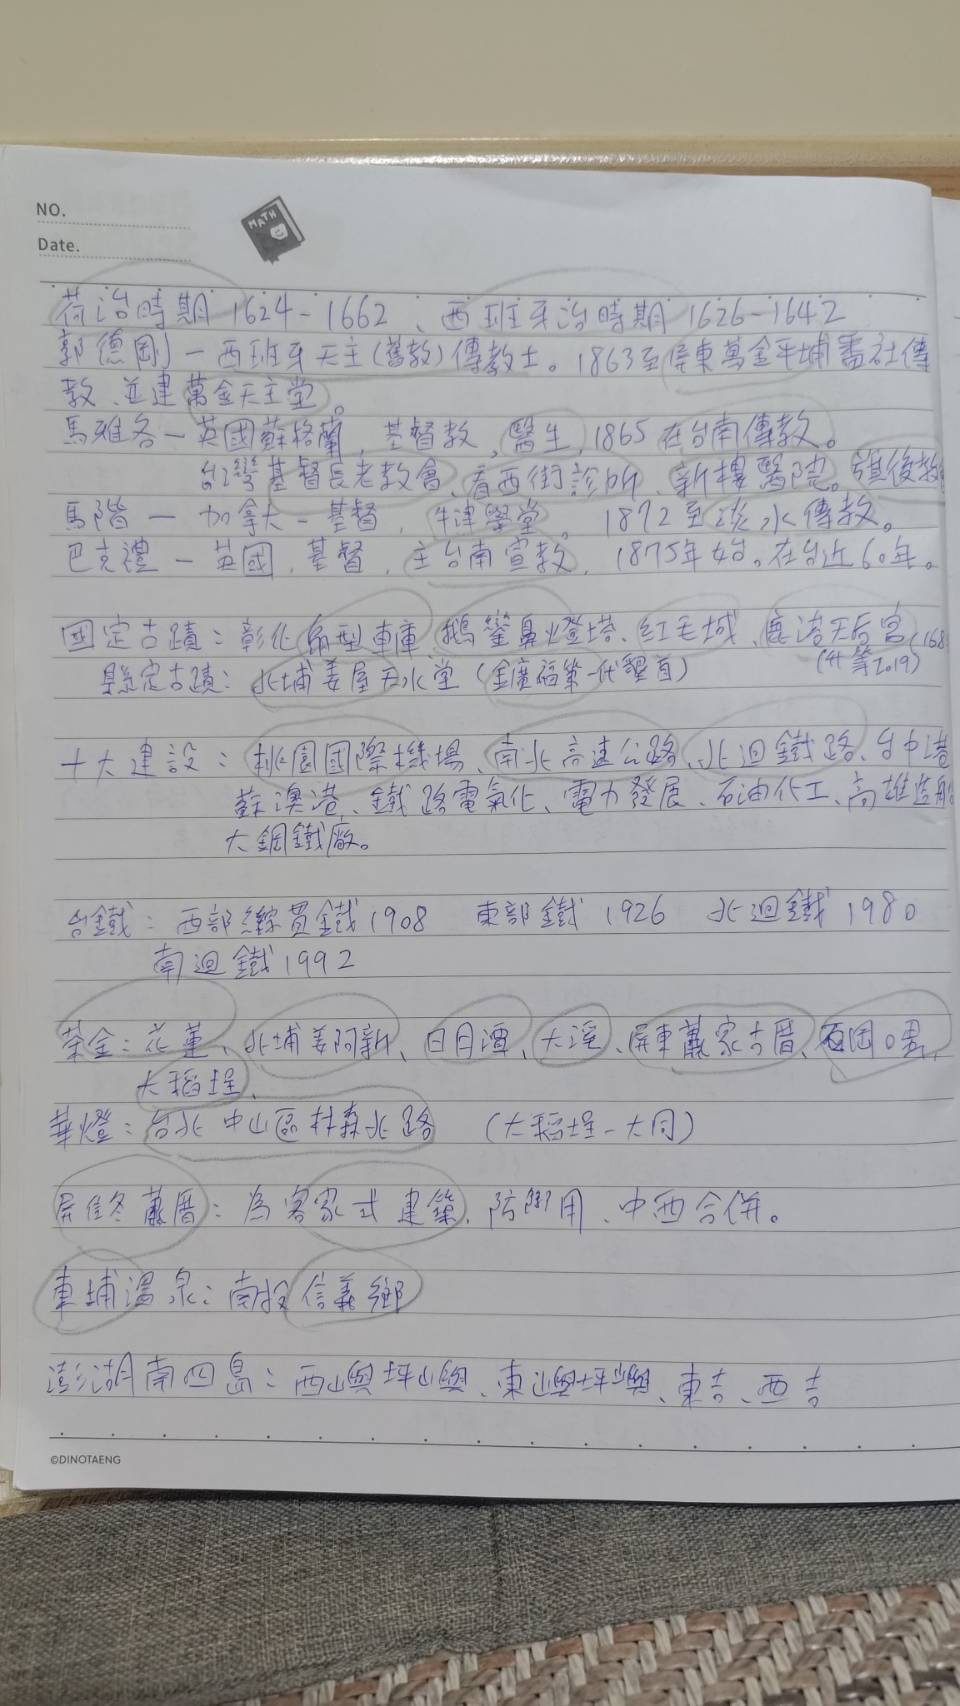 NO.
MATH
Date.
荷治時期 1624-1662、西班牙治時期 1626-1642
郭德剛-西班牙天主(舊教)傳教士。1863至屏東萬金平埔番社傳
教、並建萬金天主堂。
馬雅各-英國蘇格蘭,基督教,醫生,1865在台南傳教。
台灣基督長老教會、看西街診所、新樓醫院。旗後教
馬階-加拿大-基督,牛津學堂。1872至淡水傳教。
巴克禮-英國,基督,主台南宣教,1875年始。在台近60年。
國定古蹟:彰化扇型車庫、鵝鑾鼻燈塔、紅毛城、鹿港天后宮(168
(升等2019)
縣定古蹟:北埔姜屋天水堂(金廣福第一代墾首)
十大建設:桃園國際機場、南北高速公路、北迴鐵路、台中港
蘇澳港、鐵路電氣化、電力發展、石油化工、高雄造船
大鋼鐵廠。
台鐵:西部縱貫鐵1908 東部鐵1926 北迴鐵1980
南迴鐵1992
茶金:花蓮、北埔姜阿新、日月潭、大溪、屏東蕭家古厝、
大稻埕、
華燈:台北中山區林森北路 (大稻埕-大同)
屏佳冬蕭厝:為客家式建築、防禦用、中西合併。
東埔溫泉:南投信義鄉
澎湖南四島:西嶼坪嶼、東嶼坪嶼、東吉、西吉
©DINOTAENG